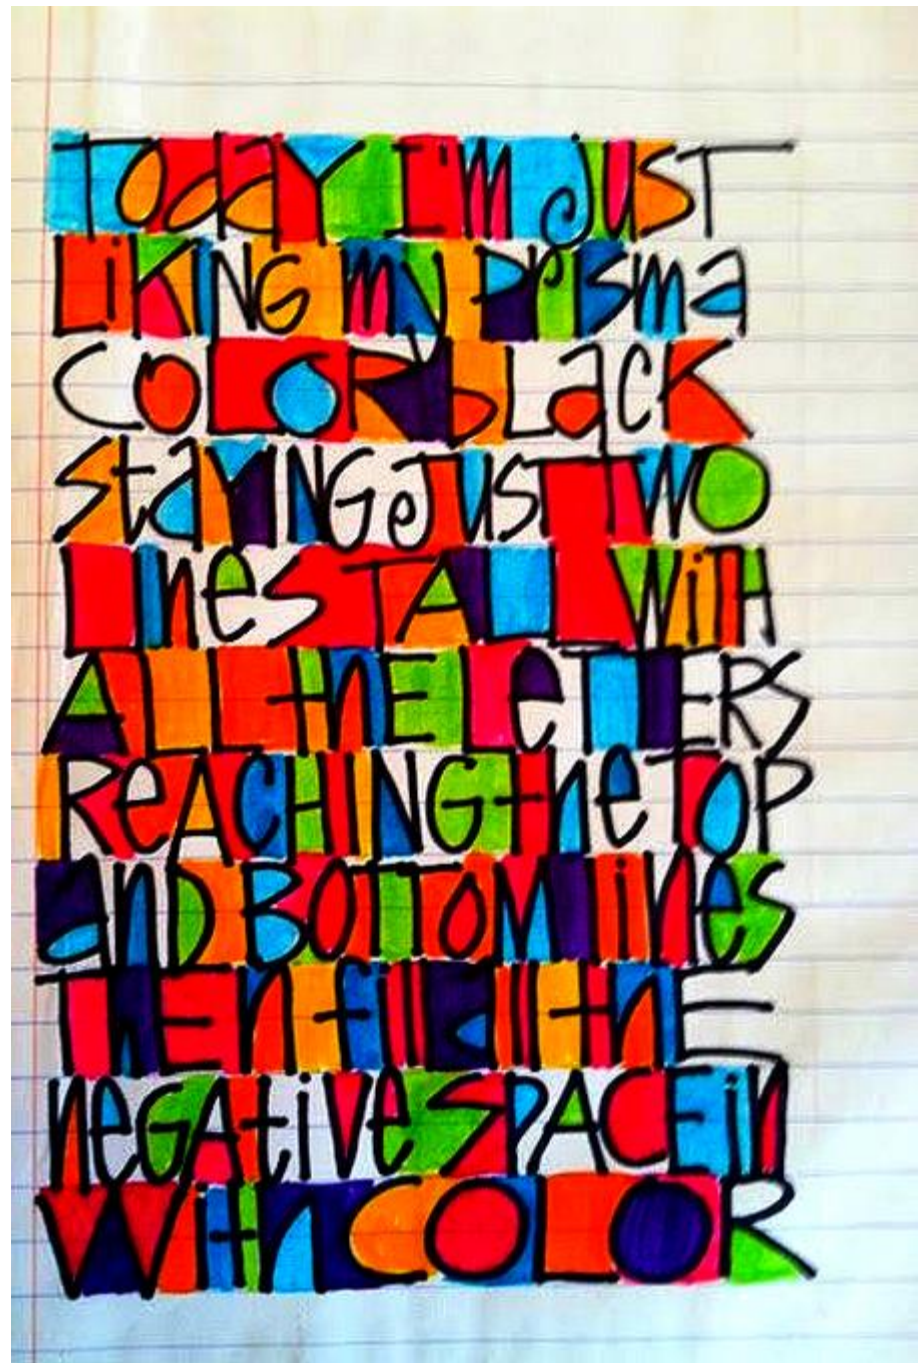 Today I'm JUST
LiKING my Prisma
COLOR bLacK
StaYING e JUST TWO
LineS TALL WitH
ALL thE LeTTERS
ReACHING the TOP
anD BOTTOM lines
ThEn fill all thE
neGAtive SPACE in
With COLOR